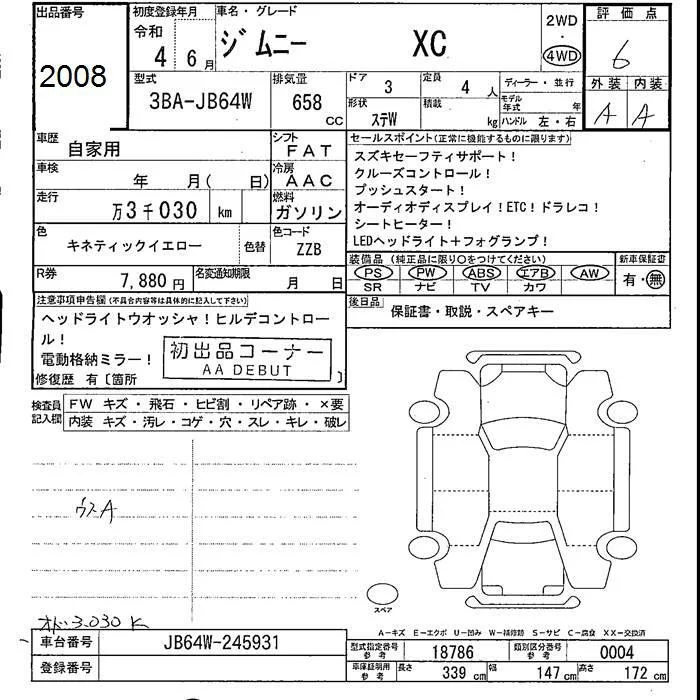 出品番号 初度登録年月 車名・グレード 2WD 評価点
2008 令和 4年 6月 ジムニー XC 4WD 6
型式 排気量 ドア 3 定員 4人 ディーラー・並行 外装 内装
3BA-JB64W 658 CC 形状 ステW 積載 kg モデル年式 年 ハンドル 左・右 A A
車歴 自家用 シフト FAT
車検 年 月( 日) 冷房 AAC
走行 万3千030 km 燃料 ガソリン
色 キネティックイエロー 色替 色コード ZZB
R券 7,880円 名変通知期限 月 日
セールスポイント(正常に機能するものに限ります)
スズキセーフティサポート!
クルーズコントロール!
プッシュスタート!
オーディオディスプレイ!ETC!ドラレコ!
シートヒーター!
LEDヘッドライト+フォグランプ!
装備品(純正品に限り○をつけてください) 新車保証書
PS PW ABS エアB AW 有・無
SR ナビ TV カワ
後日品 保証書・取説・スペアキー
注意事項申告欄(不具合内容等は具体的に記入して下さい)
ヘッドライトウオッシャ!ヒルデコントロー
ル!
電動格納ミラー!
初出品コーナー
AA DEBUT
修復歴 有〔箇所 〕
検査員 FW キズ・飛石・ヒビ割・リペア跡・×要
記入欄 内装 キズ・汚レ・コゲ・穴・スレ・キレ・破レ
ウスA
スペア
オド:3.030K
A-キズ E-エクボ U-凹み W-補修跡 S-サビ C-腐食 XX-交換済
車台番号 JB64W-245931
登録番号
型式指定番号 参考 18786 類別区分番号 参考 0004
車庫証明用 参考 長さ 339cm 幅 147cm 高さ 172cm